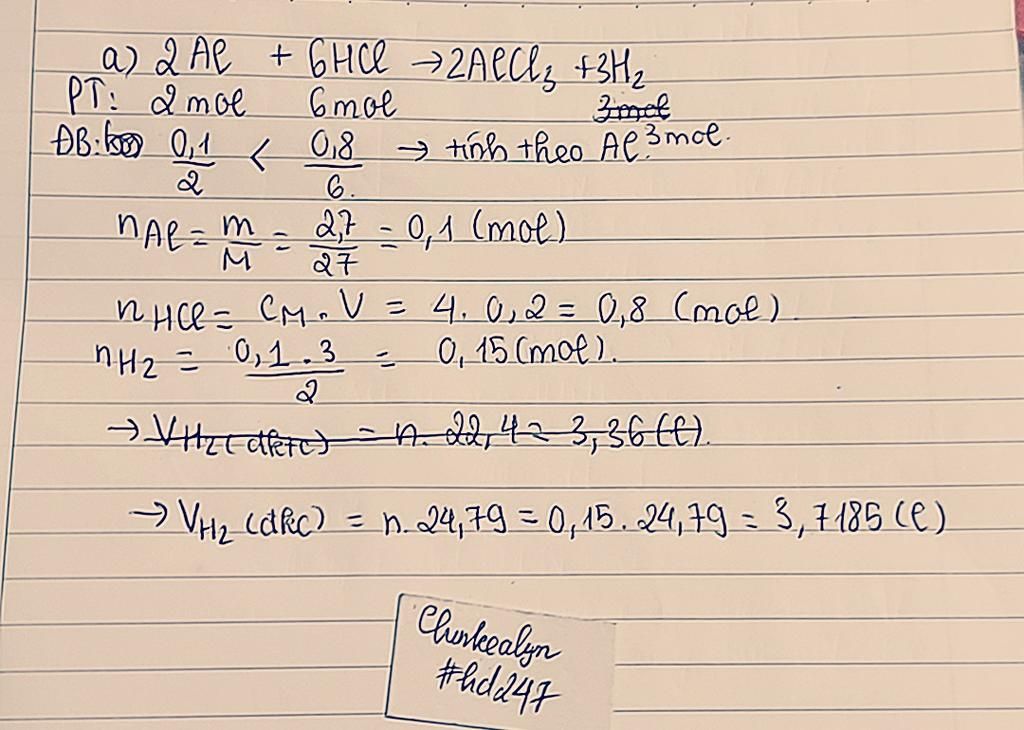 a) 2Al + 6HCl → 2AlCl₃ + 3H₂
PT: 2mol 6mol 3mol
ĐB: 0,1/2 < 0,8/6. → tính theo Al. 3mol.
nAl = m/M = 2,7/27 = 0,1 (mol)
nHCl = CM . V = 4. 0,2 = 0,8 (mol).
nH₂ = 0,1 . 3/2 = 0,15 (mol).
→ VH₂ (đktc) = n. 22,4 = 3,36 (l).
→ VH₂ (đkc) = n. 24,79 = 0,15. 24,79 = 3,7185 (l)
#hd247